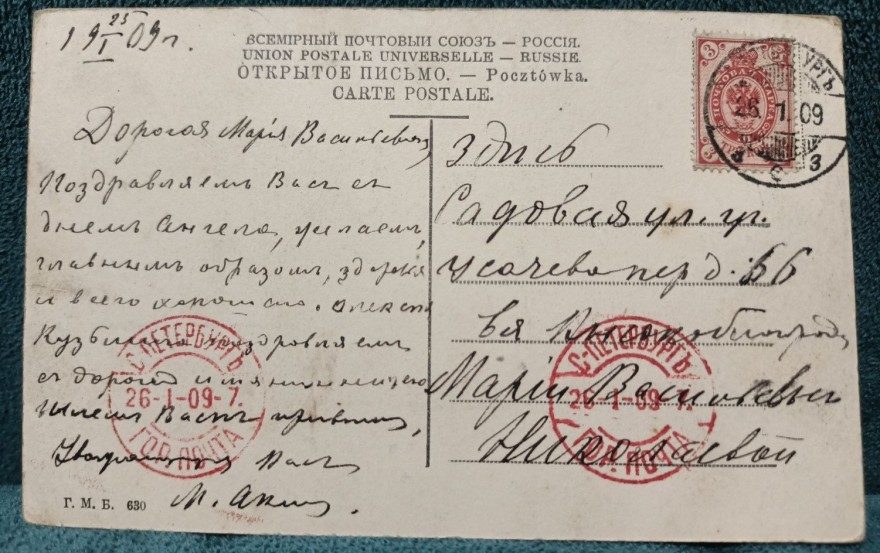 19 25/I 09 г.
ВСЕМІРНЫЙ ПОЧТОВЫЙ СОЮЗЪ — РОССІЯ.
UNION POSTALE UNIVERSELLE — RUSSIE.
ОТКРЫТОЕ ПИСЬМО. — Pocztówka.
CARTE POSTALE.
Дорогая Марія Васильевна
Поздравляемъ Васъ съ
днемъ Ангела, желаемъ,
главнымъ образомъ, здоровья
и всего хорошаго.
поздравляемъ
съ дорогой имянинницею
Васъ
Васъ
М.
Г. М. Б. 630
Здѣсь
Садовая ул. уг.
Усачева пер д. 6
Маріи Васильевны
Николаевой
3
3
3
26 1 09
3
С-ПЕТЕРБУРГЪ
26-1-09-7.
ГОР. ПОЧТА
С-ПЕТЕРБУРГЪ
26-1-09-7.
ГОР. ПОЧТА